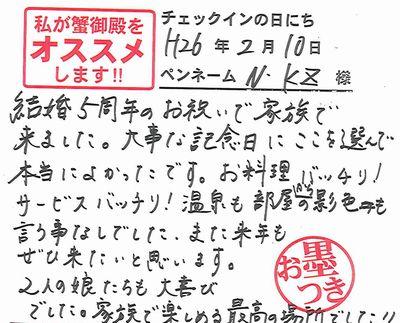 私が蟹御殿を
オススメ
します!!
チェックインの日にち
H26年2月10日
ペンネーム N.K 様
結婚5周年のお祝いで家族で
来ました。大事な記念日にここを選んで
本当によかったです。お料理バッチリ!
サービスバッチリ!温泉も部屋からの景色も
言う事なしでした。また来年も
ぜひ来たいと思います。
2人の娘たちも大喜び
でした。家族で楽しめる最高の場所でした!!
お墨つき